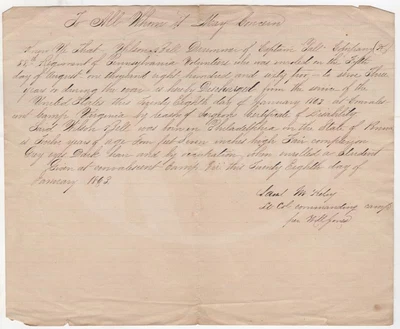 To All Whom it May Concern
Know Ye That Wilson Pell Drummer of Captain Company
Regiment of Pennsylvania Volunteers who was enrolled on the Fifth
day of August one thousand eight hundred and sixty two to serve Three
years or during the war is hereby Discharged from the service of the
United States this twenty eighth day of January 1863 at Convales
cent Camp Virginia by reason of Surgeons Certificate of Disability
Said Wilson Pell was born in Philadelphia in the State of Penna
is years of age four feet seven inches high Fair complexion
Gray eyes Dark hair and by occupation when enrolled a Student
Given at convalescent Camp Va. this Twenty Eighth day of
January 1863
Saml McKelvy
Lt Col. commanding camp
per